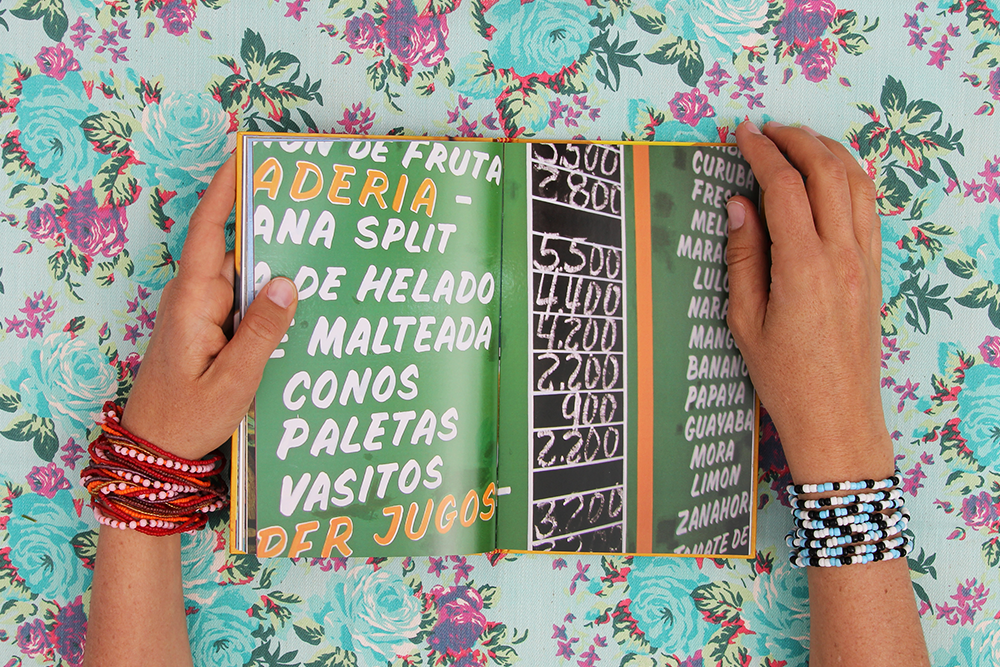 DE FRUTA
ADERIA -
ANA SPLIT
DE HELADO
MALTEADA
CONOS
PALETAS
VASITOS
DER JUGOS-
2.800
5.500
4.400
4.200
2.200
900
2.200
3.700
CURUBA
FRES
MEL
MARA
LUL
NARA
MANG
BANANO
PAPAYA
GUAYABA
MORA
LIMON
ZANAHOR
TOMATE DE